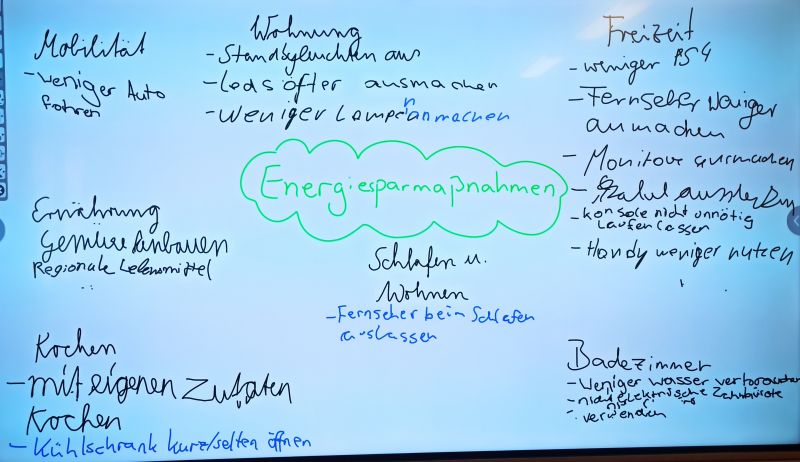 Mobilität
- weniger Auto
fahren
Wohnung
- Standbyleuchten aus
- Leds öfter ausmachen
- weniger Lampen anmachen
Freizeit
- weniger PS4
- Fernseher weniger
anmachen
- Monitore ausmachen
- ausstecken
- Konsole nicht unnötig
laufen lassen
- Handy weniger nutzen
Energiesparmaßnahmen
Ernährung
Gemüse Anbauen
Regionale Lebensmittel
Schlafen u.
Wohnen
- Fernseher beim Schlafen
auslassen
Kochen
- mit eigenen Zutaten
Kochen
- Kühlschrank kurz/selten öffnen
Badezimmer
- Weniger wasser verbrauchen
- nicht elektrische Zahnbürste
verwenden